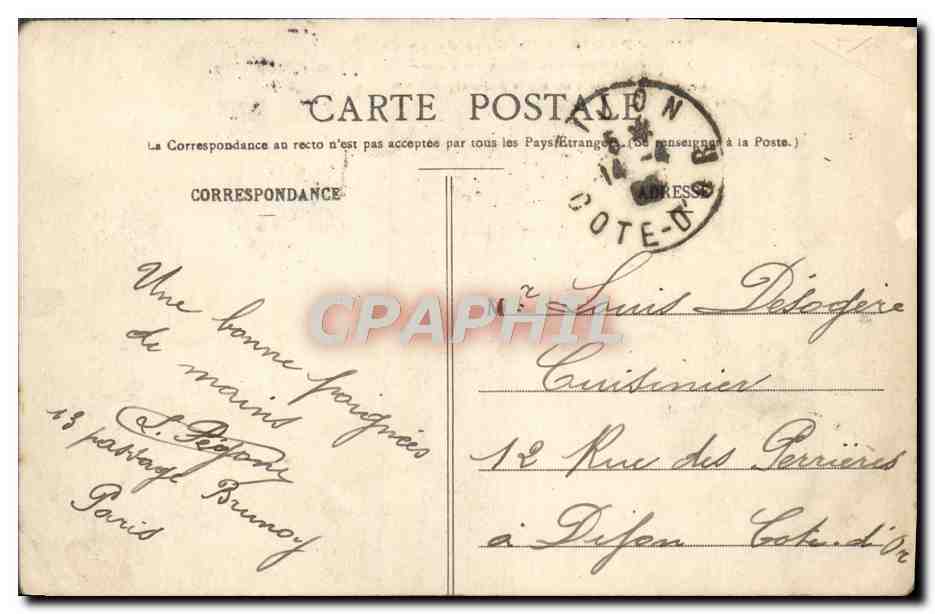 CARTE POSTALE
La Correspondance au recto n'est pas acceptée par tous les Pays Etrangers. (Se renseigner à la Poste.)
CORRESPONDANCE
ADRESSE
DIJON
14 -4
COTE-D'OR
Une bonne poignées
de mains
L. Pégorie
13 passage Brunoy
Paris
Mr Louis Désogère
Cuisinier
12 Rue des Perrières
à Dijon Cote-d'Or
CPAPHIL